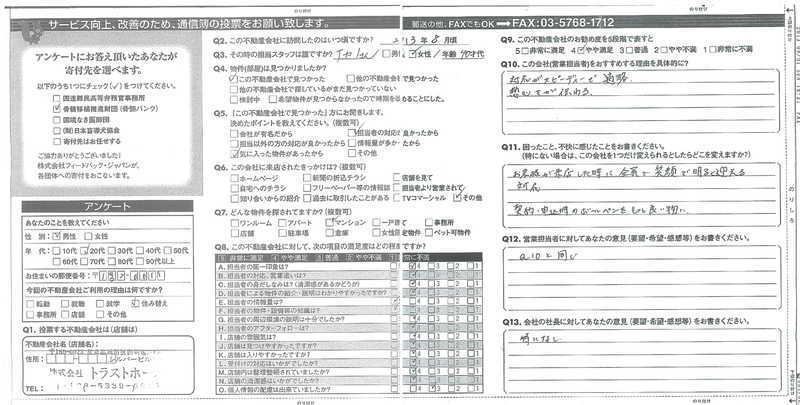 サービス向上、改善のため、通信簿の投票をお願い致します。
郵送の他、FAXでもOK → FAX:03-5768-1712
アンケートにお答え頂いたあなたが
寄付先を選べます。
以下のうち1つにチェック(✓)をつけてください。
国連難民高等弁務官事務所
骨髄移植推進財団(骨髄バンク)
国境なき医師団
(財)日本盲導犬協会
寄付先はお任せする
ご協力ありがとうございました!
株式会社フィードバック・ジャパンが、
各団体への寄付をおこないます。
アンケート
あなたのことを教えてください
性別: 男性 女性
年代: 10代 20代 30代 40代 50代
60代 70代 80代 90代以上
お住まいの郵便番号: 〒
今回の不動産会社ご利用の理由は何ですか?
転勤 就職 就学 住み替え
事務所 店舗 その他
Q1. 投票する不動産会社は(店舗は)
不動産会社名(店舗名):
住所:
株式会社 トラストホー
TEL:
Q2. この不動産会社に訪問したのはいつ頃ですか? 2013年8月頃
Q3. その時の担当スタッフは誰ですか? 男性 女性/年齢
Q4. 物件(部屋)は見つかりましたか?
この不動産会社で見つかった 他の不動産会社で見つかった
他の不動産会社で探しているがまだ見つかっていない
検討中 希望物件が見つからなかったので時期を改めることにした。
Q5. 「この不動産会社で見つかった」方にお聞きします。
決めたポイントを教えてください。(複数可)
会社が有名だから 担当者の対応が良かったから
担当以外の方の対応が良かったから 情報量が多かったから
気に入った物件があったから その他
Q6. この会社に来店されたきっかけは?(複数可)
ホームページ 新聞の折込チラシ 店舗を見て
自宅へのチラシ フリーペーパー等の情報誌 担当者より営業されて
知り合いからの紹介 過去に取引したことがある TVコマーシャル その他
Q7. どんな物件を探されてますか?(複数可)
ワンルーム アパート マンション 一戸建て 事務所
店舗 駐車場 倉庫 女性限定物件 ペット可物件
Q8. この不動産会社に対して、次の項目の満足度はどの程度ですか?
5 非常に満足 4 やや満足 3 普通 2 やや不満 1 非常に不満
A. 担当者の第一印象は? 4 3 2 1
B. 担当者の対応、営業姿勢は? 4 3 2 1
C. 担当者の身だしなみは?(清潔感があるかどうか) 4 3 2 1
D. 担当者による物件の紹介・説明はわかりやすかったですか? 4 3 2 1
E. 担当者の情報量は? 4 3 2 1
F. 担当者の物件・設備等の知識は? 4 3 2 1
G. 担当者の周辺環境の説明は十分でしたか? 4 3 2 1
H. 担当者のアフターフォローは? 4 3 2 1
I. 店舗の雰囲気は? 4 3 2 1
J. 店舗は見つけやすかったですか? 4 3 2 1
K. 店舗は入りやすかったですか? 4 3 2 1
L. 受付けの対応はいかがでしたか? 4 3 2 1
M. 店舗内は整理整頓されていましたか? 4 3 2 1
N. 店舗の清潔感はいかがでしたか? 4 3 2 1
O. 個人情報の配慮は出来ていましたか? 4 3 2 1
Q9. この不動産会社のお勧め度を5段階で表すと
5 非常に満足 4 やや満足 3 普通 2 やや不満 1 非常に不満
Q10. この会社(営業担当者)をおすすめする理由を具体的に?
対応がスピーディーで 適確
Q11. 困ったこと、不快に感じたことをお書きください。
(特にない場合は、この会社を1つだけ変えられるとしたらどこを変えますか?)
お客様が来店した時に全員で笑顔で明るく迎える
対応
契約・申込時のボールペンをもっと良い物に。
Q12. 営業担当者に対してあなたの意見(要望・希望・感想等)をお書きください。
Q10と同じ
Q13. 会社の社長に対してあなたの意見(要望・希望・感想等)をお書きください。
特になし
のりしろ